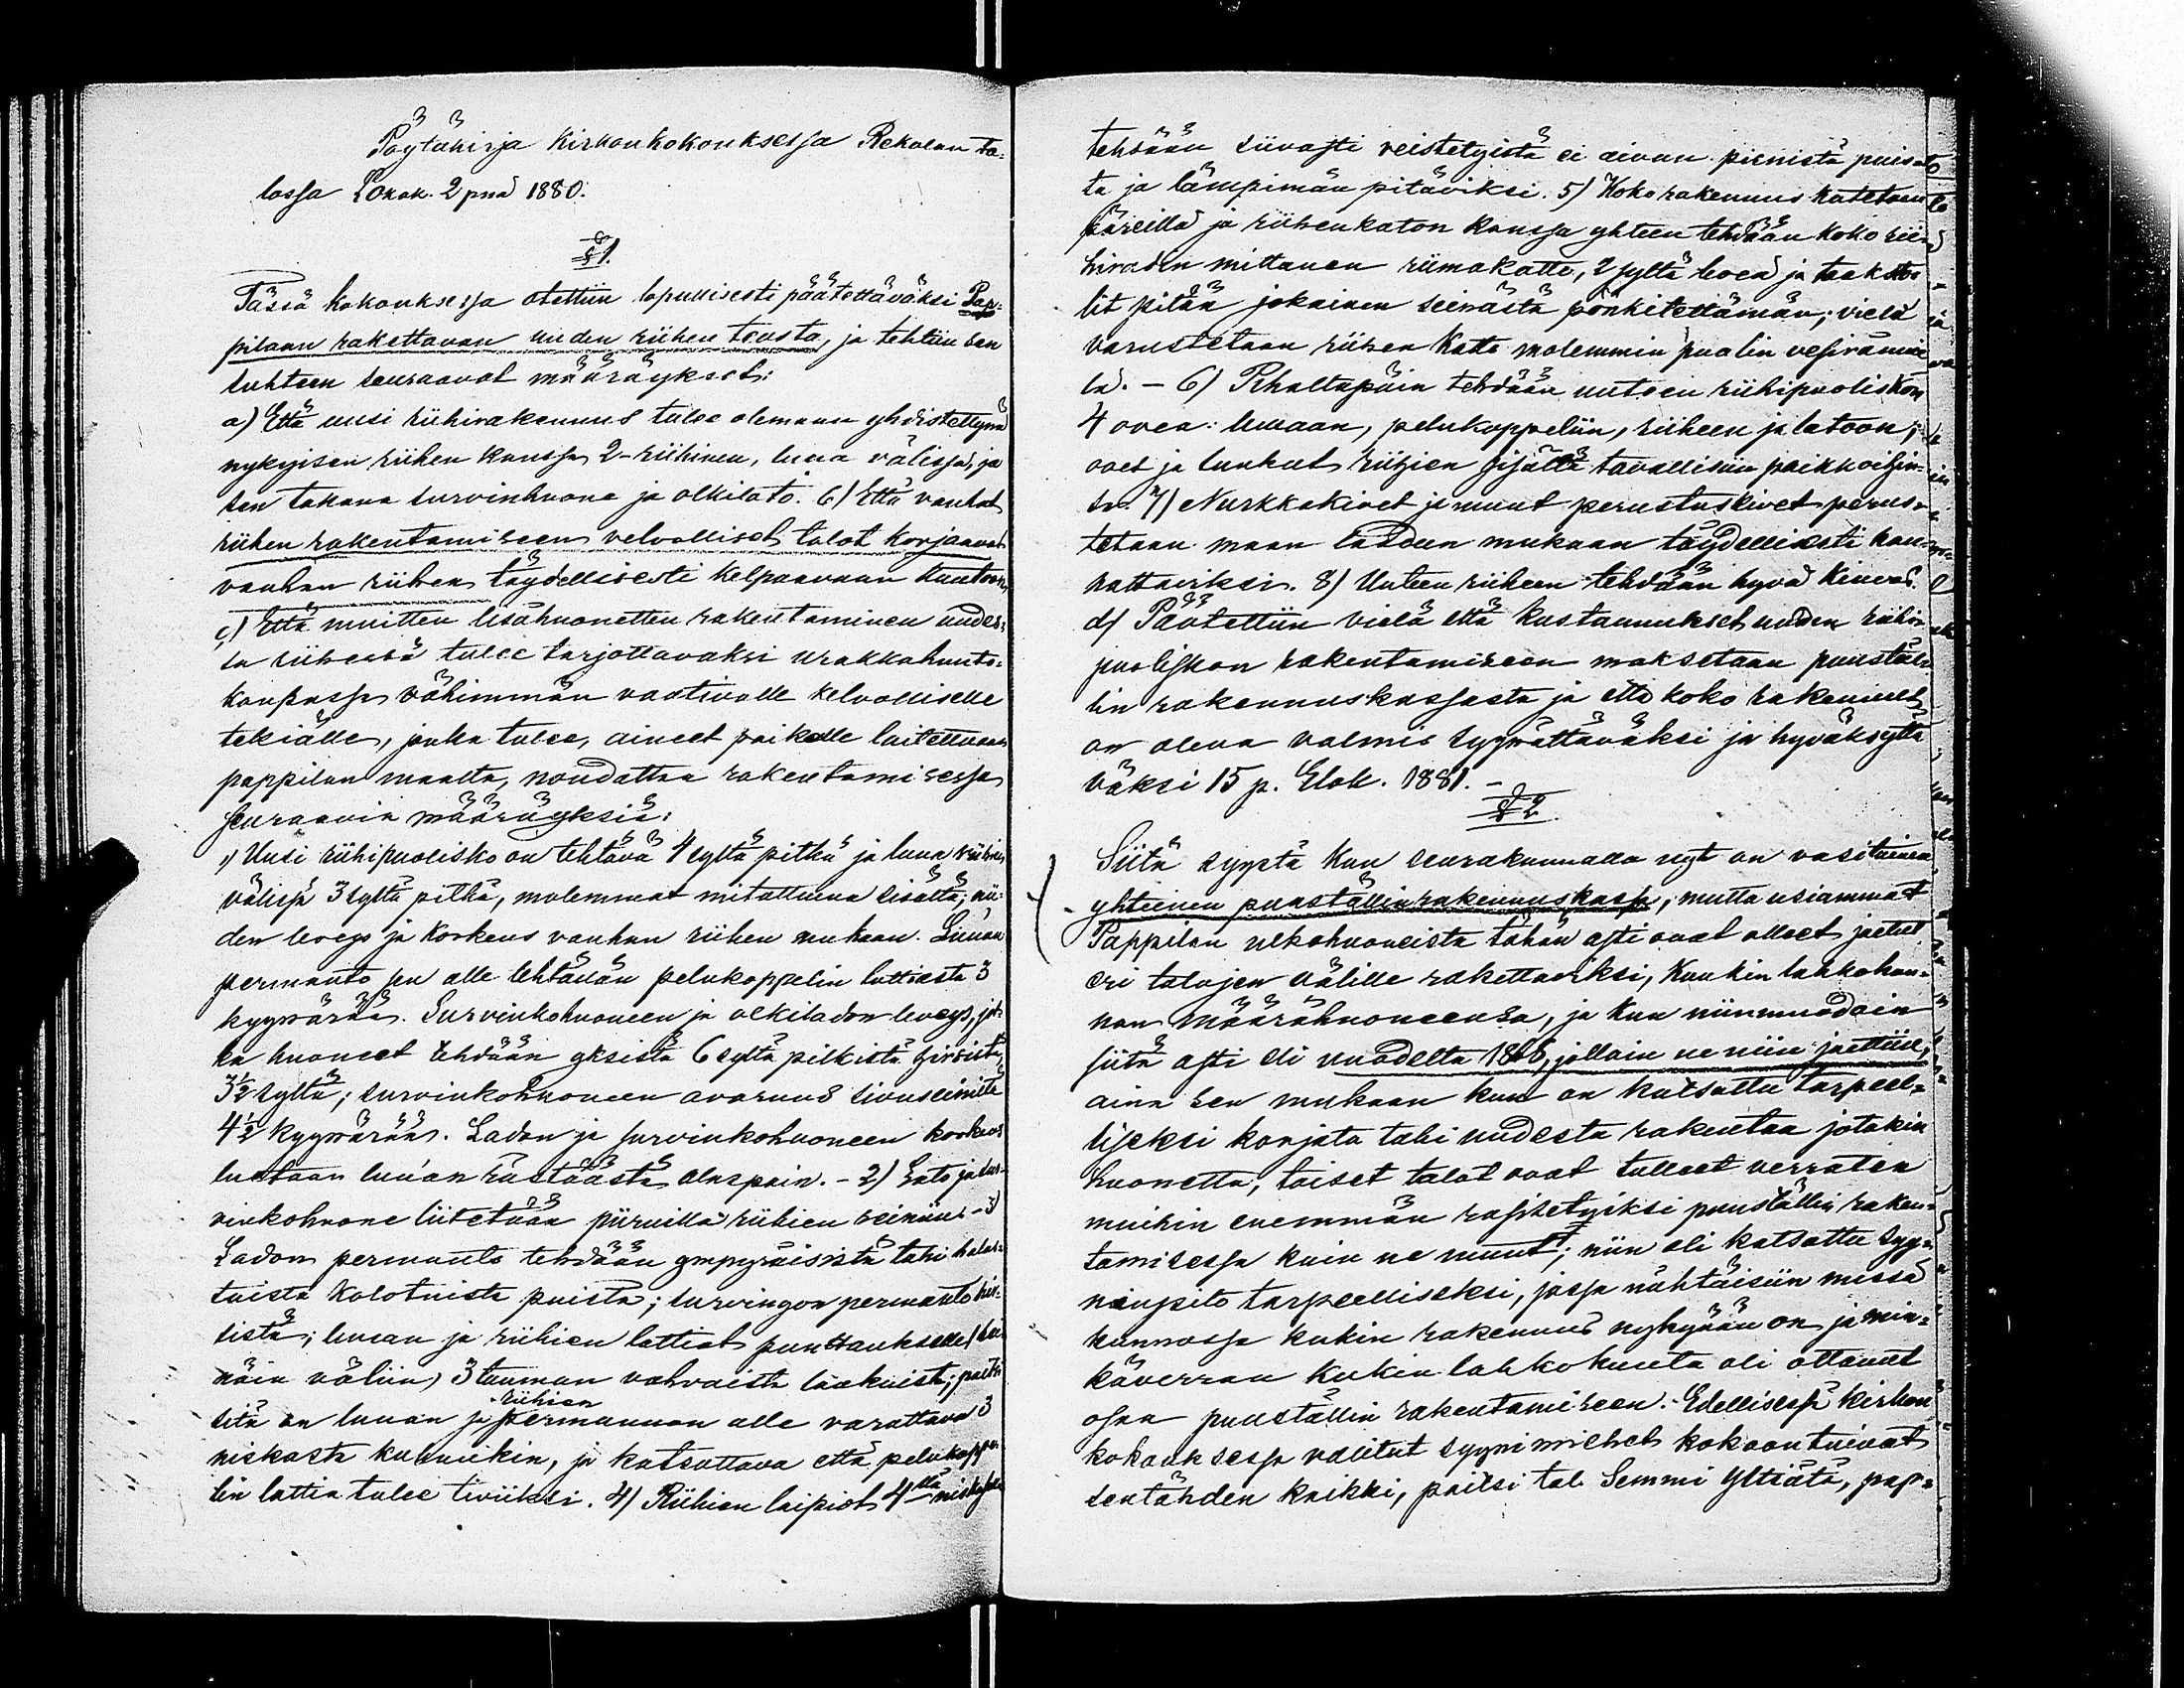 Pöytäkirja Kirkonkokouksessa Rekolan ta-
lossa Lokak. 2 pnä 1880.
§ 1.
Tässä kokouksessa otettiin lopullisesti päätettäväksi Pap-
pilaan rakettavan uuden riihen teosta, ja tehtiin sen
suhteen seuraavat määräykset:
a) Että uusi riihirakennus tulee olemaan yhdistettynä
nykyisen riihen kanssa 2-riihinen, luua välissä, ja
sen takana survinhuone ja olkilato. b) Että vanhat
riihen rakentamiseen velvolliset talot korjaavat
vanhan riihen täydellisesti kelpaavaan kuntoon,
c) Että muitten lisähuonetten rakentaminen uudes-
sa riihessä tulee tarjottavaksi urakkahuuto-
kaupassa vähimmän vaativalle kelvolliselle
tekiälle, jonka tulee, aineet paikalle laitettuaan
pappilan maalta, noudattaa rakentamisessa
seuraavia määräyksiä:
1) Uusi riihipuolisko on tehtävä 4 syltä pitkä ja luua riihien
välissä 3 syltä pitkä, molemmat mitattuina sisältä; nii-
den leveys ja korkeus vanhan riihen mukaan. Luuan
permanto sen alle tehtävän pelukoppelin lattiasta 3
kyynärää. Survinkohuoneen ja olkiladon leveys, jot-
ka huoneet tehdään yksistä 6 syltä pitkistä hirsistä,
3½ syltä; survinkohuoneen avaruus sivuseinillä
4½ kyynärää. Ladon ja survinkohuoneen korkeus
luetaan luuan räystäästä alaspäin. - 2) Lato ja sur-
vinkohuone liitetään piiruilla riihien seiniin - 3)
Ladon permanto tehdään ympyräisistä tahi halais-
tuista kolotuista puista; survingon permanto hir-
sistä; luuan ja riihien lattiat punttaukselle (sei-
näin väliin) 3 tuuman vahvoista lankuista; paitsi
sitä on luuan ja riihien permannon alle varattava 3
niskasta kuhunkin, ja katsottava että pelukoppe-
lin lattia tulee tiviiksi. 4) Riihien laipiot 4llä niskasella
tehdään siivosti veistetyistä ei aivan pienistä puis-
ta ja lämpimän pitäviksi. 5) Koko rakennus katetaan
päreillä ja riihenkaton kanssa yhteen tehdään koko rii-
hiradin mittanen riimakatto, 2 syltä leveä ja taaksto-
lit pitää jokainen seinästä pönkitettämän; vielä
varustetaan riihen katto molemmin puolin vesirännil-
lä. - 6) Pihaltapäin tehdään uuteen riihipuoliskoon
4 ovea: luuaan, pelukoppeliin, riiheen ja latoon;
ovet ja luukut riihien sisältä tavallisiin paikkoihin-
sa. 7) Nurkkakivet ja muut perustuskivet perus-
tetaan maan laadun mukaan täydellisesti kan-
nattaviksi. 8) Uuteen riiheen tehdään hyvä kiuvas.
d) Päätettiin vielä että kustannukset uuden riihi-
puoliskon rakentamiseen maksetaan puustäl-
lin rakennuskassasta ja että koko rakennus
on oleva valmis syynättäväksi ja hyväksyttä
väksi 15 p. Elok. 1881. -
§ 2.
Siitä syystä kun seurakunnalla nyt on vasituinen
yhteinen puuställin rakennuskassa, mutta usiammat
Pappilan ulkohuoneista tähän asti ovat olleet jaetut
eri talojen välille rakettaviksi, kunkin lahkokun-
nan määrähuoneensa, ja kun niinmuodoin
siitä asti eli vuodelta 1848, jolloin ne niin jaettiin,
aina sen mukaan kun on katsottu tarpeel-
liseksi korjata tahi uudesta rakentaa jotakin
huonetta, toiset talot ovat tulleet verraten
muihin enemmän rasitetyiksi puuställin raken-
tamisessa kuin ne muut; niin oli katsottu syy-
ninpito tarpeelliseksi, jossa nähtäisiin missä
kunnossa kukin rakennus nykyään on ja min-
käverran kukin lahkokunta oli ottanut
osaa puuställin rakentamiseen. - Edellisessä kirkon
kokouksessa valitut syynimiehet kokoontuivat
sentähden kaikki, paitsi tal. Semmi Yltiätä, pap-